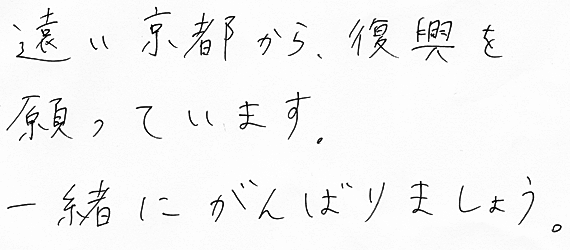 遠い京都から、復興を
願っています。
一緒にがんばりましょう。